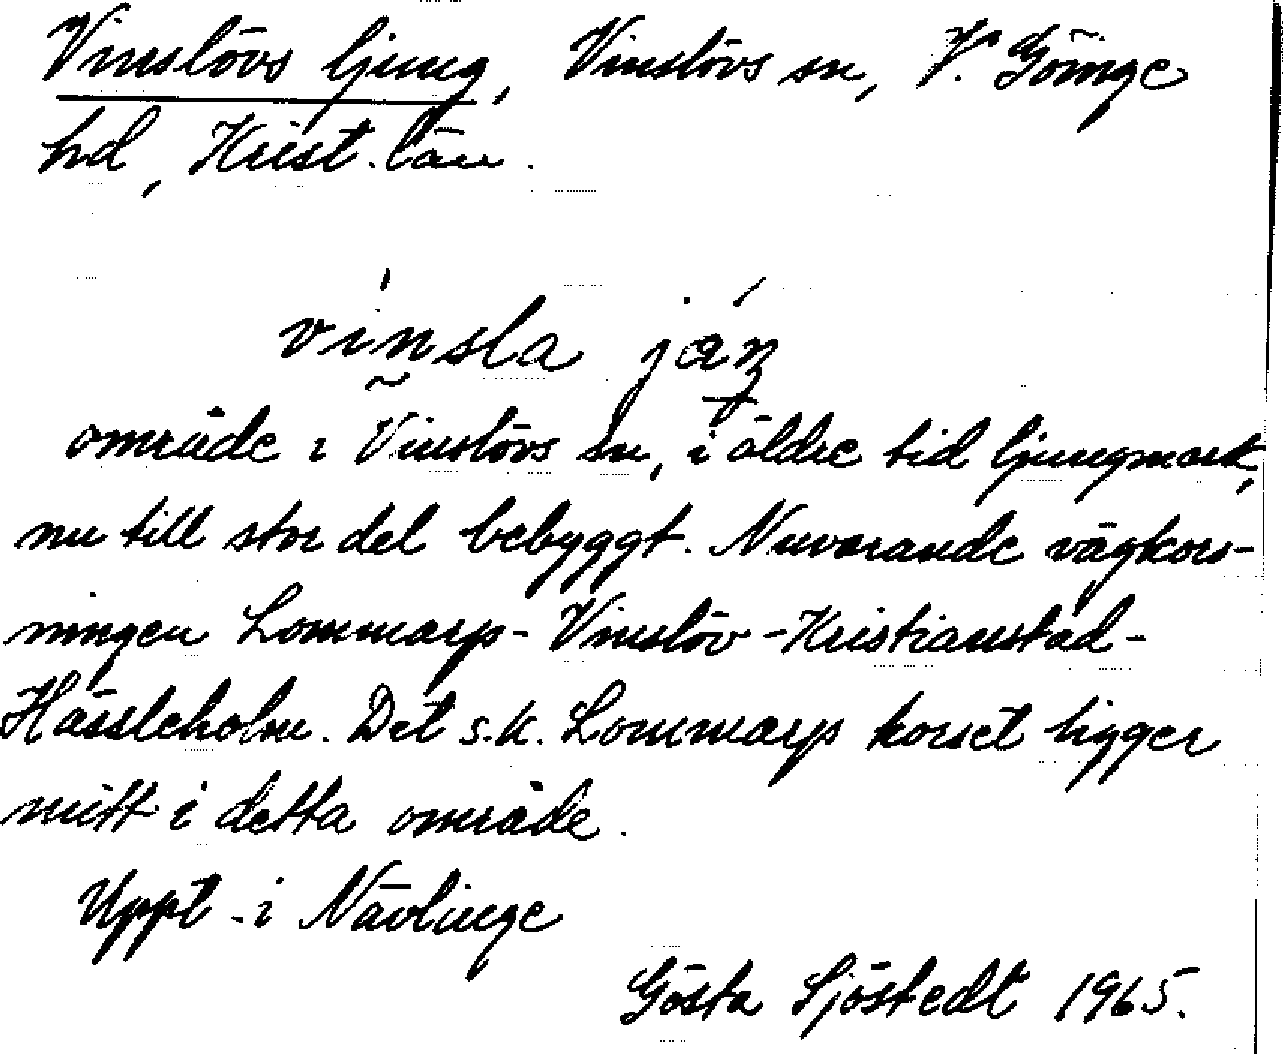 Vinslövs ljung, Vinslövs sn, V. Göinge
hd, Krist. län.
vinsla jáŋ
område i Vinslövs sn, i äldre tid ljungmark,
nu till stor del bebyggt. Nuvarande vägkors-
ningen Lommarp-Vinslöv-Kristianstad-
Hässleholm. Det s.k. Lommarp korset ligger
mitt i detta område.
Uppt. i Nävlinge
Gösta Sjöstedt 1965.